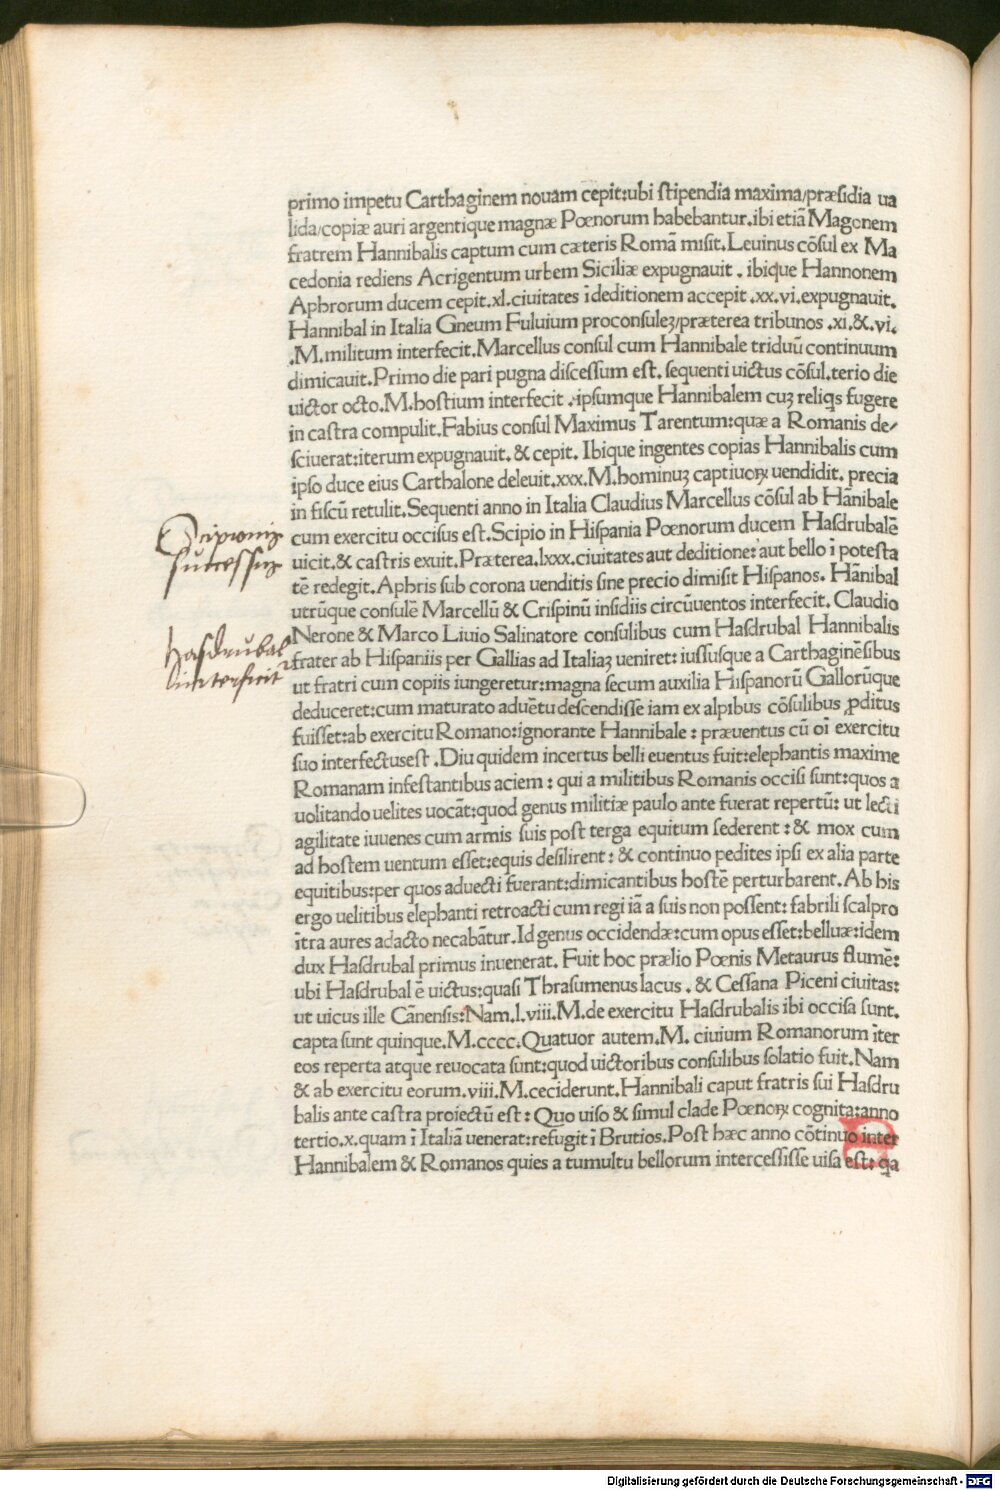 primo impetu Carthaginem nouam cepit:ubi stipendia maxima/præsidia ua
lida/copiæ auri argentique magnæ Pœnorum habebantur.ibi etiã Magonem
fratrem Hannibalis captum cum cæteris Romã misit.Leuinus cõsul ex Ma
cedonia rediens Acrigentum urbem Siciliæ expugnauit . ibique Hannonem
Aphrorum ducem cepit.xl.ciuitates ĩdeditionem accepit .xx.vi.expugnauit.
Hannibal in Italia Gneum Fuluium proconsuleʒ/præterea tribunos .xi.&.vi.
.M.militum interfecit.Marcellus consul cum Hannibale triduũ continuum
dimicauit.Primo die pari pugna discessum est. sequenti uictus cõsul.terio die
uictor octo.M.hostium interfecit .ipsumque Hannibalem cuʒ reliqs fugere
in castra compulit.Fabius consul Maximus Tarentum:quæ a Romanis de/
sciuerat:iterum expugnauit. & cepit. Ibique ingentes copias Hannibalis cum
ipso duce eius Carthalone deleuit.xxx.M.hominuʒ captiuoꝝ uendidit. precia
in fiscũ retulit.Sequenti anno in Italia Claudius Marcellus cõsul ab Hãnibale
cum exercitu occisus est.Scipio in Hispania Pœnorum ducem Hasdrubalẽ
uicit.& castris exuit.Præterea.lxxx.ciuitates aut deditione:aut bello ĩ potesta
tẽ redegit.Aphris sub corona uenditis sine precio dimisit Hispanos. Hãnibal
utrũque consulẽ Marcellũ & Crispinũ insidiis circũuentos interfecit. Claudio
Nerone & Marco Liuio Salinatore consulibus cum Hasdrubal Hannibalis
frater ab Hispaniis per Gallias ad Italiaʒ ueniret: iussusque a Carthaginẽsibus
ut fratri cum copiis iungeretur:magna secum auxilia Hispanorũ Gallorũque
deduceret:cum maturato aduẽtu descendisse iam ex alpibus cõsulibus ꝓditus
fuisset:ab exercitu Romano:ignorante Hannibale : præuentus cũ oĩ exercitu
suo interfectusest .Diu quidem incertus belli euentus fuit:elephantis maxime
Romanam infestantibus aciem : qui a militibus Romanis occisi sunt:quos a
uolitando uelites uocãt:quod genus militiæ paulo ante fuerat repertũ: ut lecti
agilitate iuuenes cum armis suis post terga equitum sederent : & mox cum
ad hostem uentum esset:equis desilirent : & continuo pedites ipsi ex alia parte
equitibus:per quos aduecti fuerant:dimicantibus hostẽ perturbarent.Ab his
ergo uelitibus elephanti retroacti cum regi iã a suis non possent: fabrili scalpro
ĩtra aures adacto necabãtur.Id genus occidendæ:cum opus esset:belluæ:idem
dux Hasdrubal primus inuenerat. Fuit hoc prælio Pœnis Metaurus flumẽ:
ubi Hasdrubal ẽ uictus:quasi Thrasumenus lacus . & Cessana Piceni ciuitas:
ut uicus ille Cãnensis:Nam.l.viii.M.de exercitu Hasdrubalis ibi occisa sunt.
capta sunt quinque.M.cccc.Quatuor autem.M. ciuium Romanorum ĩter
eos reperta atque reuocata sunt:quod uictoribus consulibus solatio fuit.Nam
& ab exercitu eorum.viii.M.ceciderunt.Hannibali caput fratris sui Hasdru
balis ante castra proiectũ est : Quo uiso & simul clade Pœnoꝝ cognita:anno
tertio.x.quam ĩ Italiã uenerat:refugit ĩ Brutios.Post hæc anno cõtinuo inter
Hannibalem & Romanos quies a tumultu bellorum intercessisse uisa est: qa
Scipionis
successus
Hasdrubal
interficit
Digitalisierung gefördert durch die Deutsche Forschungsgemeinschaft - DFG